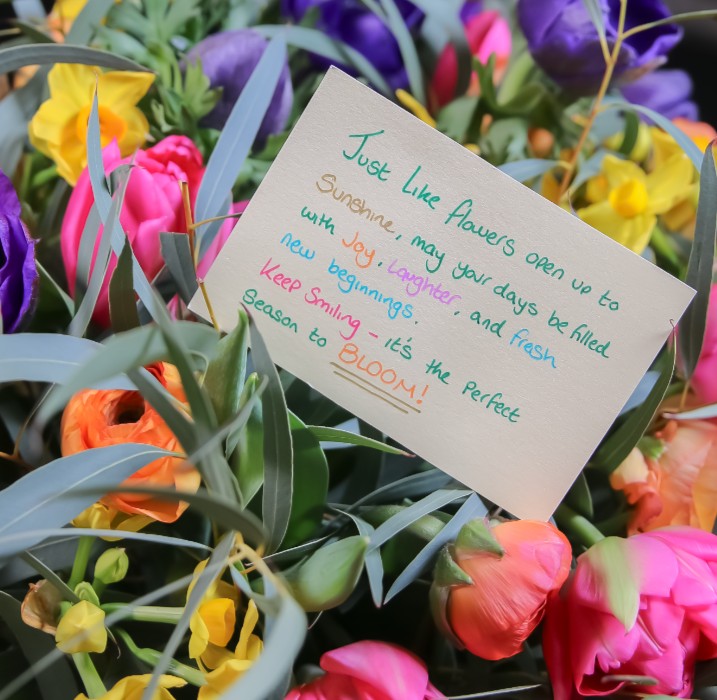 Just like flowers open up to
Sunshine, may your days be filled
with Joy, Laughter, and fresh
new beginnings.
Keep Smiling - it's the perfect
Season to BLOOM!